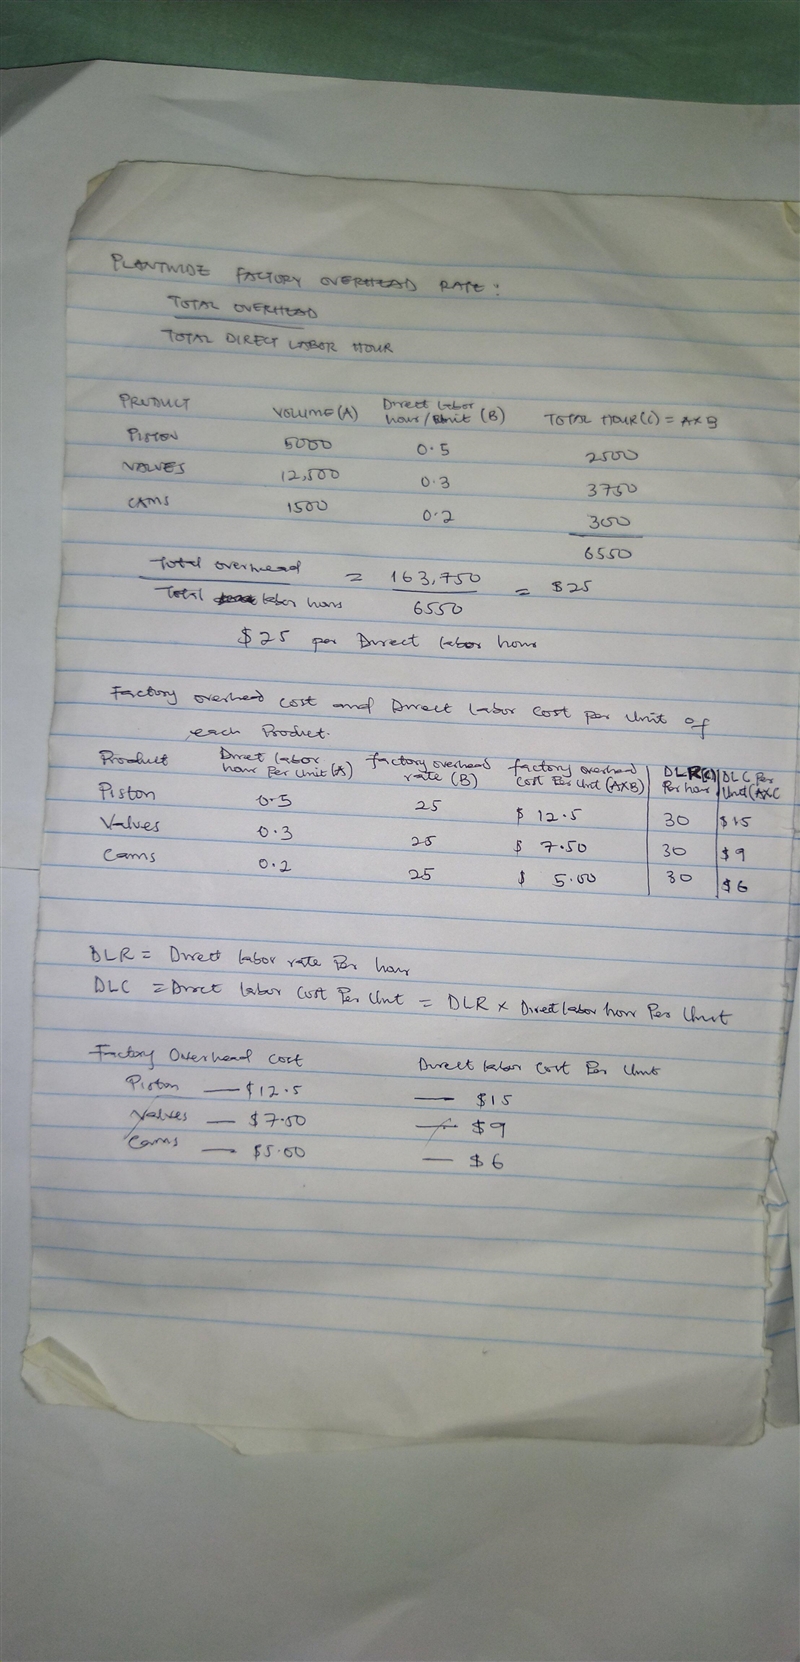 PLANTWIDE FACTORY OVERHEAD RATE:
TOTAL OVERHEAD
TOTAL DIRECT LABOR HOUR
PRODUCT VOLUME (A) Direct labor hour/Unit (B) TOTAL HOUR (C) = A×B
PISTON 5000 0.5 2500
VALVES 12,500 0.3 3750
CAMS 1500 0.2 300
6550
Total overhead = 163,750 = $25
Total labor hours 6550
$25 per Direct labor hour
Factory overhead cost and Direct labor cost per Unit of
each Product.
Product Direct labor hour Per Unit (A) factory overhead rate (B) factory overhead Cost Per Unit (A×B) DLR(C) Per hour DLC Per Unit (A×C
Piston 0.5 25 $ 12.5 30 $15
Valves 0.3 25 $ 7.50 30 $9
Cams 0.2 25 $ 5.00 30 $6
DLR = Direct labor rate Per hour
DLC = Direct labor Cost Per Unit = DLR × Direct labor hour Per Unit
Factory Overhead cost Direct labor Cost Per Unit
Piston — $12.5 — $15
Valves — $7.50 — $9
Cams — $5.00 — $6